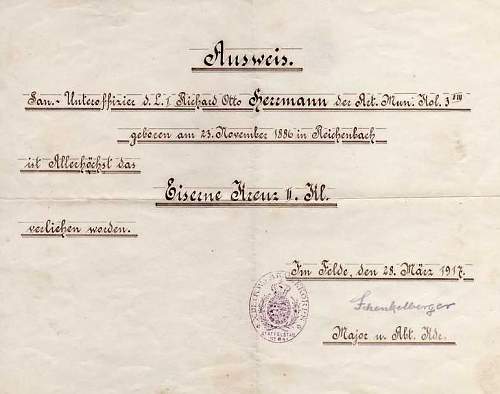 Ausweis.
San.- Unteroffizier d. L. I Richard Otto Herrmann der Art. Mun. Kol. 3 VIII
geboren am 23. November 1886 in Reichenbach
ist Allerhöchst das
Eiserne Kreuz II. Kl.
verliehen worden.
Im Felde, den 28. März 1917.
Schenkelberger
Major u. Abt. Kdr.